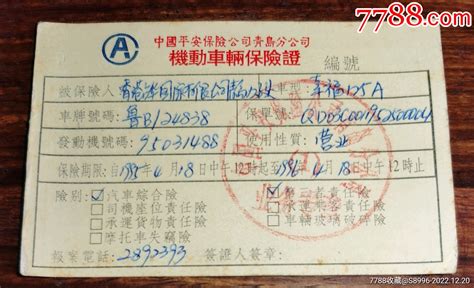 7788.com
中國平安保險公司青島分公司
機動車輛保險證
編號
被保險人 車型:幸福125A
車牌號碼 魯B/24838 保單號: QD03C0019525000004
發動機號碼: 95031488 使用性質: 营业
保險期限:自1995年4月18日中午12時起至1996年4月18日中午12時止
險别: ☑汽車綜合險 ☑第三者責任險
□司機座位責任險 □承運 責任險
□承運貨物責任險 □車輛玻璃破碎險
□摩托車失竊險
報案電話: 2892393 簽證人簽章:
7788收藏@S8996-2022.12.20